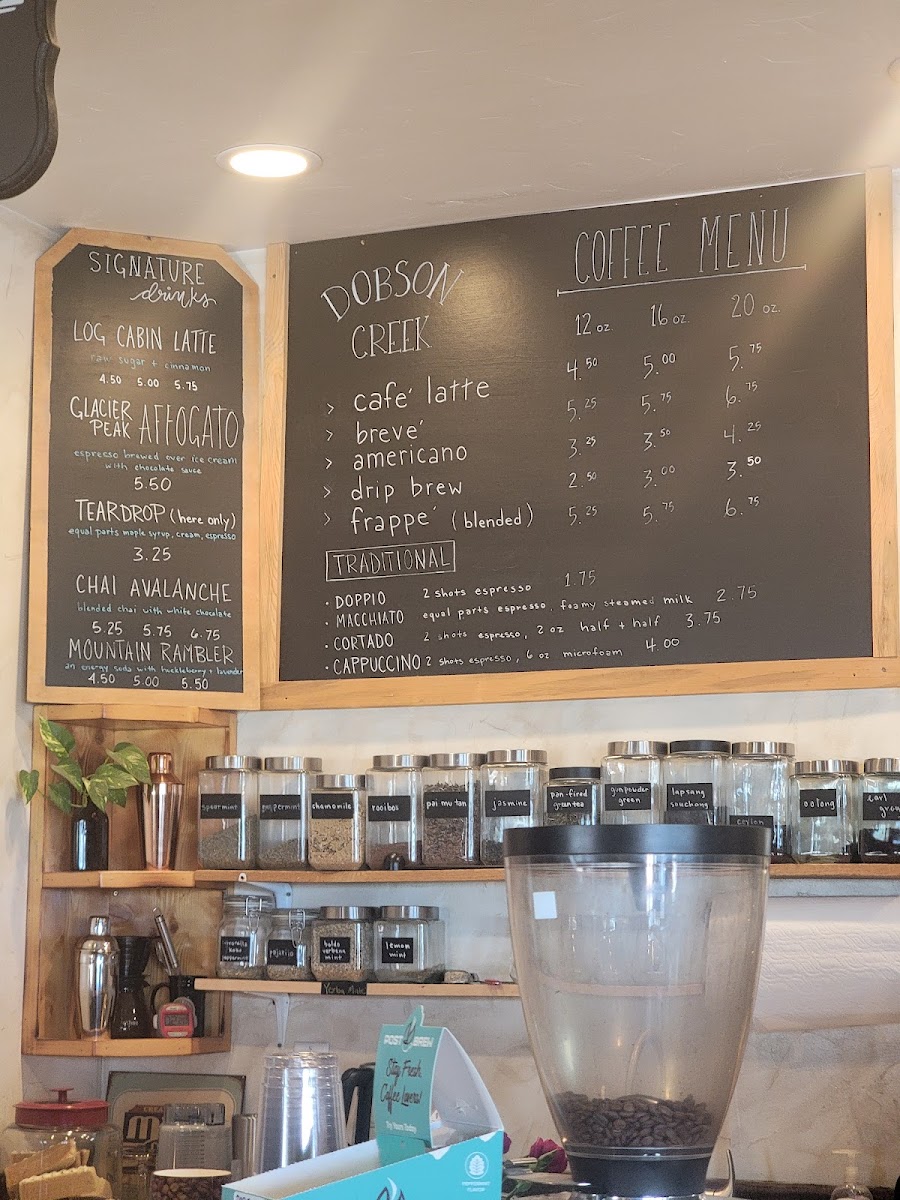 SIGNATURE
drinks
LOG CABIN LATTE
raw sugar + cinnamon
4.50 5.00 5.75
GLACIER PEAK AFFOGATO
espresso brewed over ice cream
with chocolate sauce
5.50
TEARDROP (here only)
equal parts maple syrup, cream, espresso
3.25
CHAI AVALANCHE
blended chai with white chocolate
5.25 5.75 6.75
MOUNTAIN RAMBLER
an energy soda with huckleberry + lavender
4.50 5.00 5.50
DOBSON
CREEK
COFFEE MENU
12 oz. 16 oz. 20 oz.
> cafe' latte 4.50 5.00 5.75
> breve' 5.25 5.75 6.75
> americano 3.25 3.50 4.25
> drip brew 2.50 3.00 3.50
> frappe' (blended) 5.25 5.75 6.75
TRADITIONAL
• DOPPIO 2 shots espresso 1.75
• MACCHIATO equal parts espresso, foamy steamed milk 2.75
• CORTADO 2 shots espresso, 2 oz half + half 3.75
• CAPPUCCINO 2 shots espresso, 6 oz microfoam 4.00
spearmint
chamomile
rooibos
pai mu tan
jasmine
pan-fired
green tea
gunpowder
green
lapsang
souchong
ceylon
oolong
earl
grey
boldo
verbena
mint
lemon
mint
Yerba Mate
POST BREW
Stay Fresh,
Coffee Lovers!
Try Yours Today.